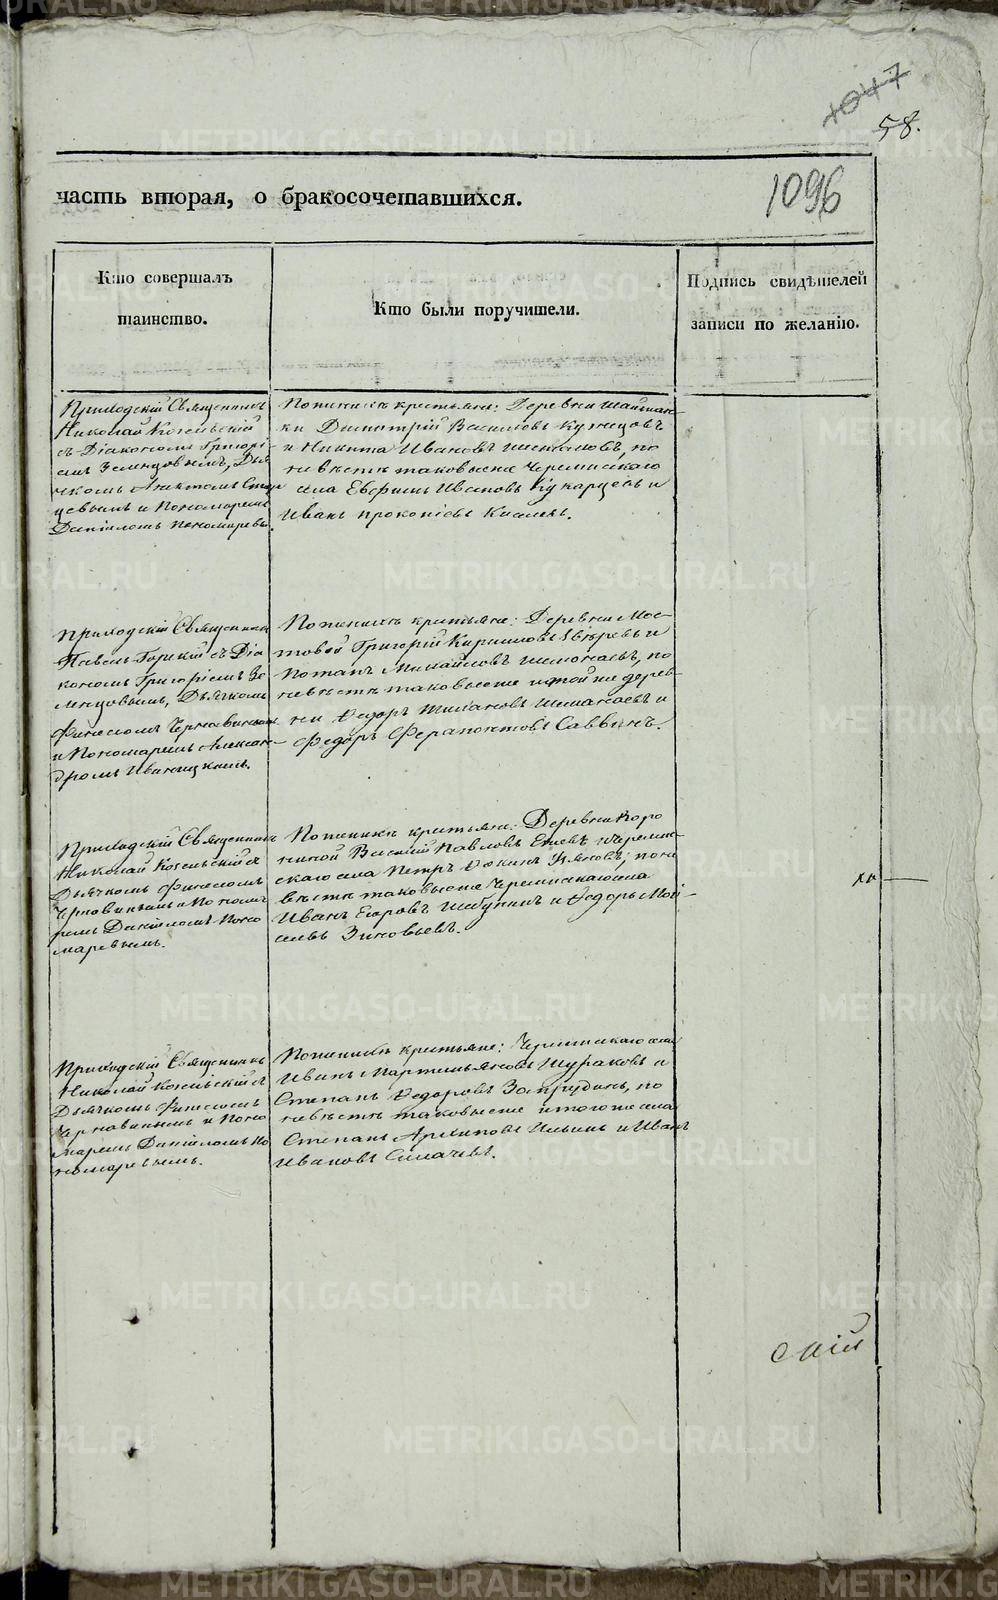 1047
58.
часть вторая, о бракосочетавшихся.
1096
Кто совершалъ
таинство.
Кто были поручители.
Подпись свидѣтелей
записи по желанію.
Приходскій Священникъ
Николай
съ Діакономъ Григорі-
емъ Земляцовымъ, Дья-
чкомъ
и Пономаремъ
Даніиломъ Пономаревы
По женихѣ крестьяне: Деревни
ки Димитрій Васильевъ Кузнецовъ
и Никита Ивановъ по
невѣстѣ таковые же Черемисскаго
села Ефимъ Ивановъ и
Иванъ Прокопіевъ
Приходскій Священникъ
Павелъ Горскій съ Діа
кономъ Григоріемъ Зе
млянцовымъ, Дьячкомъ
Финесомъ Чернавинымъ
и Пономаремъ Алексан-
дромъ Иваницкимъ.
По женихѣ крестьяне: Деревни Мос-
товой Григорій Кириловъ Звѣревъ и
Потапъ Михайловъ по
невѣстѣ таковые же и той же дерев-
ни Ѳедоръ и
Федоръ Ферапонтовъ Саввинъ.
Приходскій Священникъ
Николай
Дьячкомъ Финесомъ
Чернавинымъ и Понома
ремъ Даніиломъ Поно
маревымъ.
По женихѣ крестьяне: Деревни Коро
ткой Василій Павловъ и Черемис-
скаго села Петръ по не
вѣстѣ таковые же Черемисскаго села
Иванъ Егоровъ и Ѳедоръ Мои-
сеевъ Зиновьевъ.
Приходскій Священникъ
Николай
Дьячкомъ Финесомъ
Чернавинымъ и Поно
маремъ Даніиломъ По
номаревымъ.
По женихѣ крестьяне: Черемисскаго села
Иванъ Мартемьяновъ Шураковъ и
Степанъ Ѳедоровъ Запрудинъ, по
невѣстѣ таковые же и того же села
Степанъ Архиповъ Ильинъ и Иванъ
Ивановъ
скій
METRIKI.GASO-URAL.RU